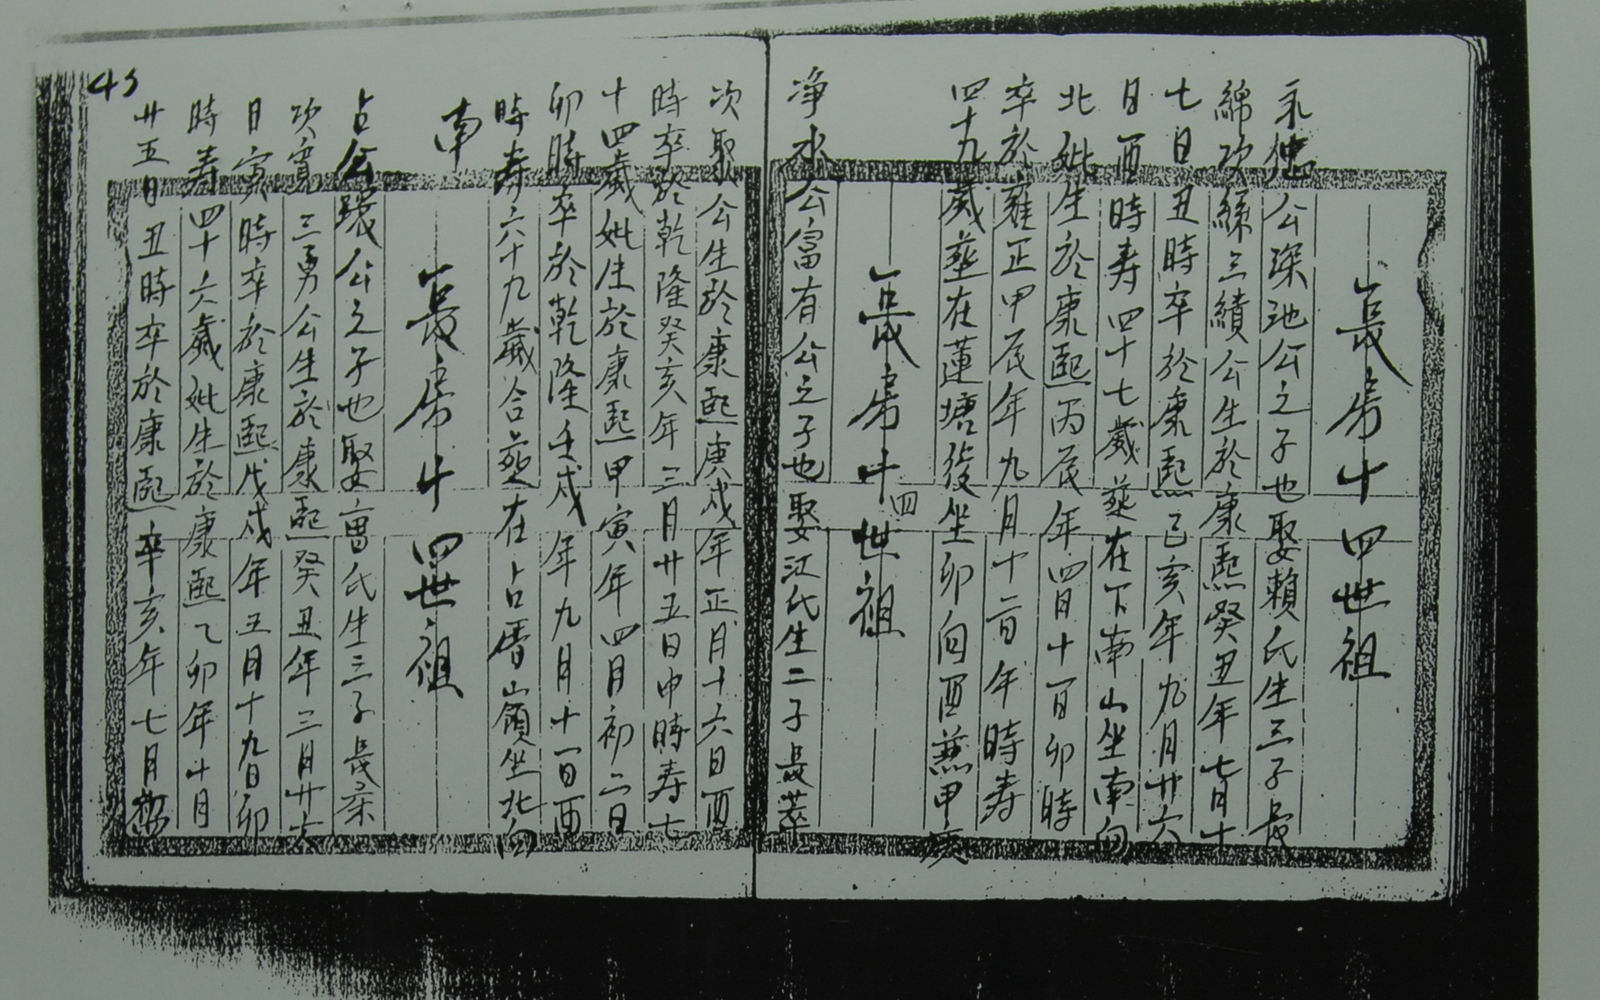 長房十四世祖
公深池公之子也娶賴氏生三子長
綿次綵三績公生於康熙癸丑年七月十
七日丑時卒於康熙己亥年九月廿六
日酉時寿四十七歲葬在下南山坐南向
北妣生於康熙丙辰年四月十一日卯時
卒於雍正甲辰年九月十二日午時寿
四十九歲葬在蓮塘後坐卯向酉兼甲庚
長房十四世祖
净水公富有公之子也娶江氏生二子長
次聖公生於康熙庚戌年正月十六日酉
時卒於乾隆癸亥年三月廿五日申時寿七
十四歲妣生於康熙甲寅年四月初二日
卯時卒於乾隆壬戌年九月十一日酉
時寿六十九歲合葬在占厝山嶺坐北向
南
長房十四世祖
占公公之子也娶曾氏生三子長
次寬三勇公生於康熙癸丑年三月廿六
日寅時卒於康熙戊戌年五月十九日卯
時寿四十六歲妣生於康熙乙卯年十月
廿五日丑時卒於康熙辛亥年七月
45